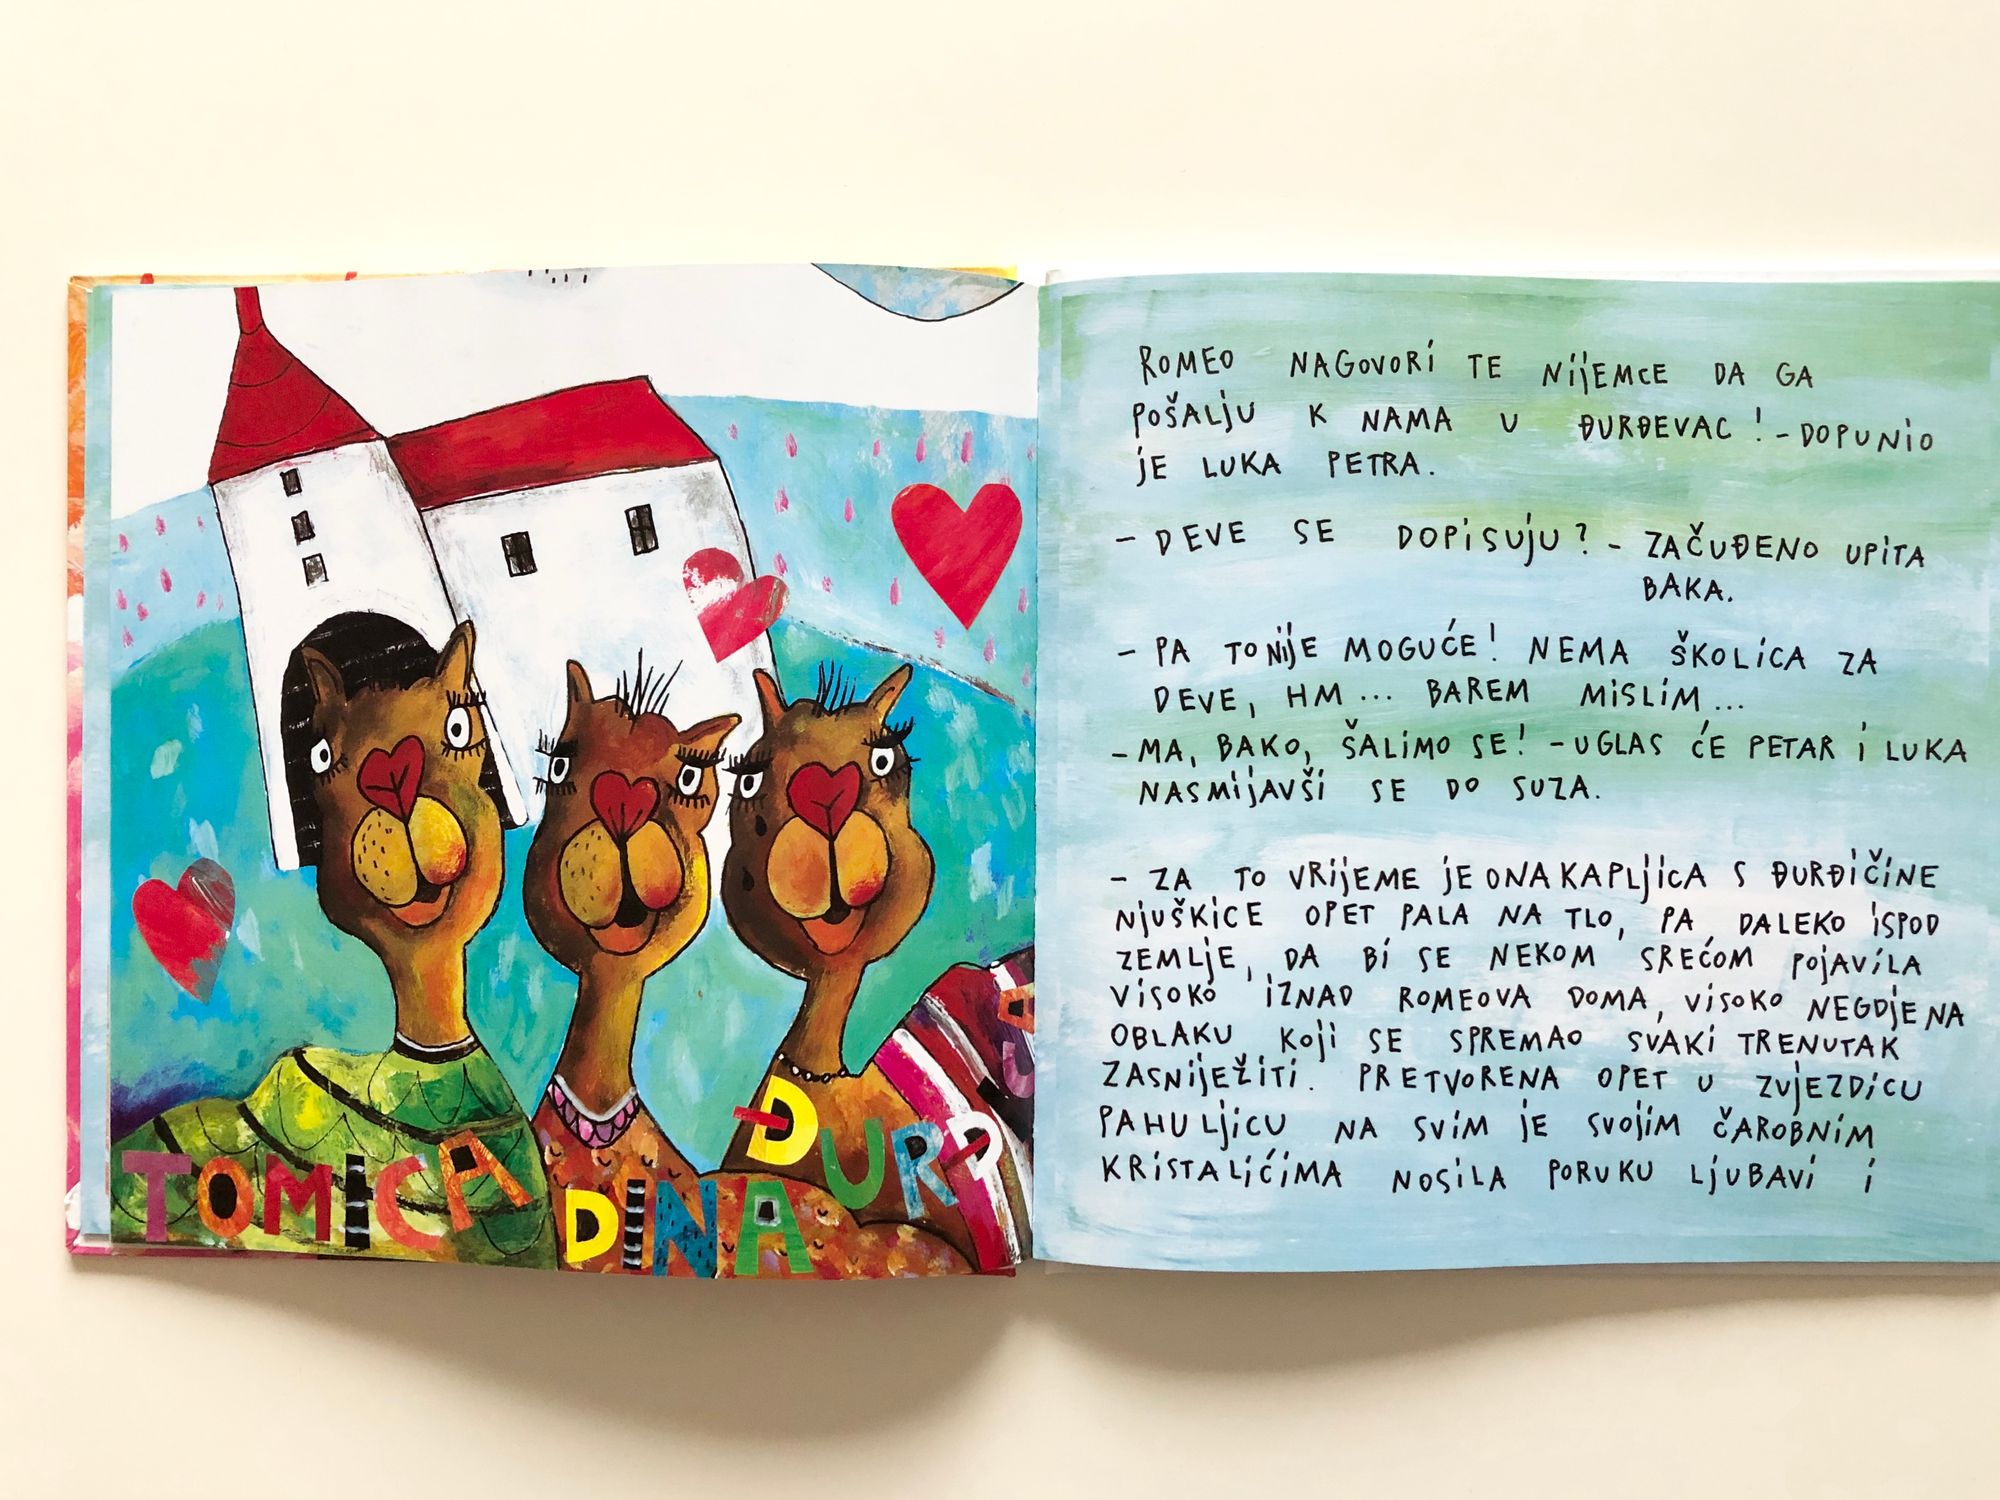 TOMICA
DINA
ĐURĐ
ROMEO NAGOVORI TE NIJEMCE DA GA
POŠALJU K NAMA U ĐURĐEVAC! - DOPUNIO
JE LUKA PETRA.
- DEVE SE DOPISUJU? - ZAČUĐENO UPITA
BAKA.
- PA TO NIJE MOGUĆE! NEMA ŠKOLICA ZA
DEVE, HM... BAREM MISLIM...
- MA, BAKO, ŠALIMO SE! - UGLAS ĆE PETAR I LUKA
NASMIJAVŠI SE DO SUZA.
- ZA TO VRIJEME JE ONA KAPLJICA S ĐURĐIČINE
NJUŠKICE OPET PALA NA TLO, PA DALEKO ISPOD
ZEMLJE, DA BI SE NEKOM SREĆOM POJAVILA
VISOKO IZNAD ROMEOVA DOMA, VISOKO NEGDJE NA
OBLAKU KOJI SE SPREMAO SVAKI TRENUTAK
ZASNIJEŽITI. PRETVORENA OPET U ZVJEZDICU
PAHULJICU NA SVIM JE SVOJIM ČAROBNIM
KRISTALIĆIMA NOSILA PORUKU LJUBAVI I